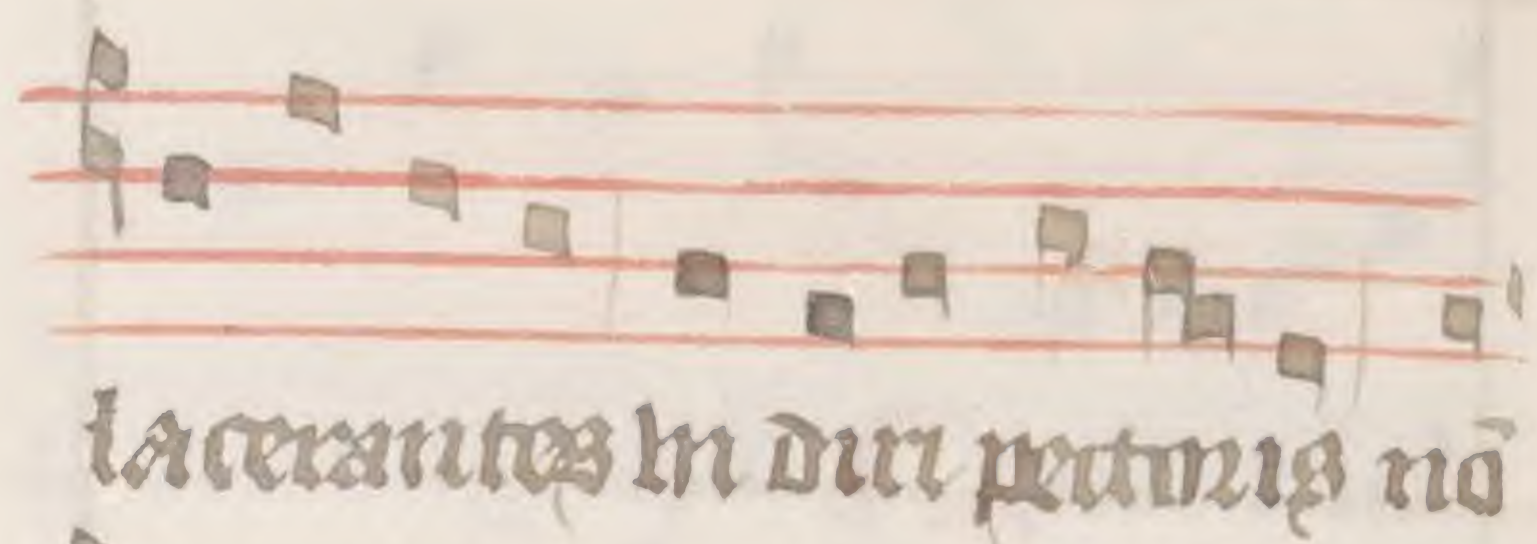 lacerantes In diri pectoris nō